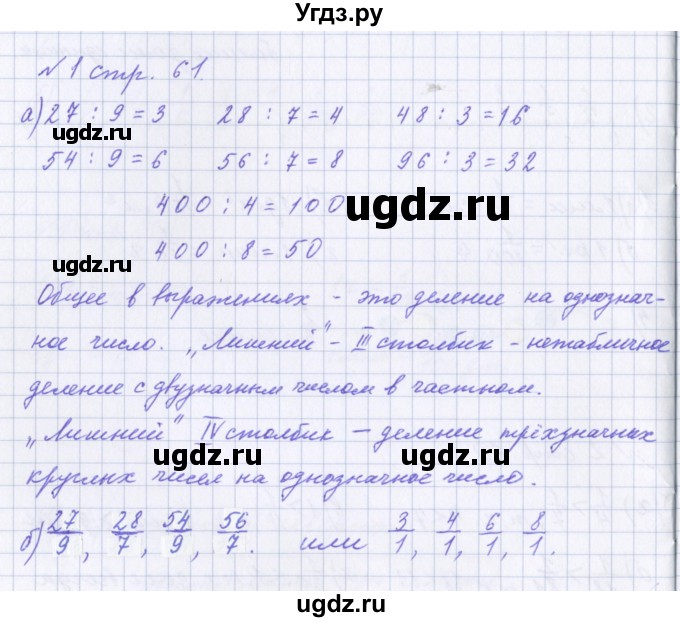 Угдз.ру
№1 стр. 61.
а) 27 : 9 = 3 28 : 7 = 4 48 : 3 = 16
ugdz.ru
54 : 9 = 6 56 : 7 = 8 96 : 3 = 32
400 : 4 = 100
ugdz.ru
400 : 8 = 50
ugdz.ru
Общее в выражениях - это деление на однознач-
ное число. „Лишний" - III столбик - нетабличное
деление с двузначным числом в частном.
„Лишний" IV столбик — деление трёхзначных
ugdz.ru ugdz.ru
круглых чисел на однозначное число.
б) 27/9, 28/7, 54/9, 56/7. или 3/1, 4/1, 6/1, 8/1.
ugdz.ru